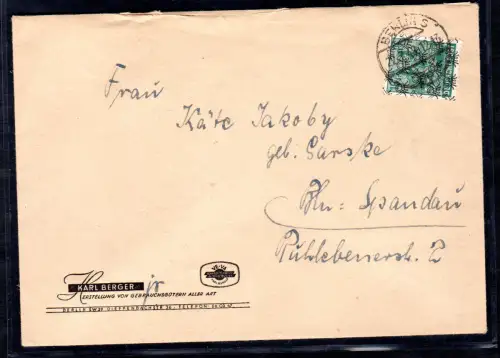 BERLIN S
Frau
Käte Jakoby
geb. Garske
Bln=Spandau
Ruhlebenerstr. 2
KARL BERGER jr
HERSTELLUNG VON GEBRAUCHSGÜTERN ALLER ART
BERLIN SW29 DIEFFENBACHSTR TELEFON